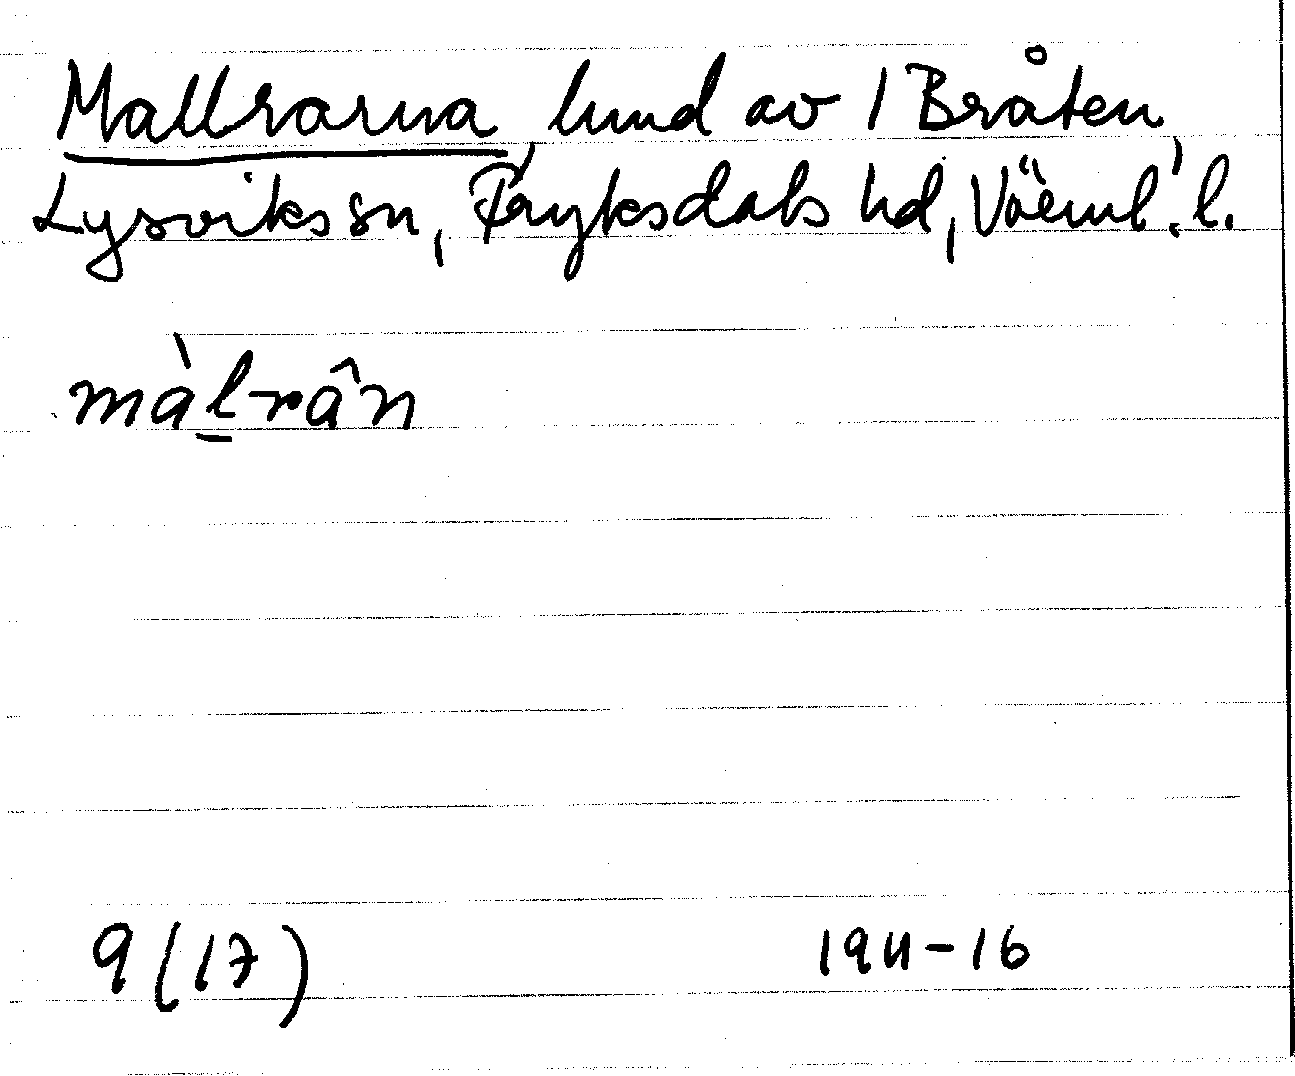 Mallrarna, lund av 1 Bråten,
Lysviks sn, Fryksdals hd, Värml. l.
màl̲-rân
9 (17)
1911-16